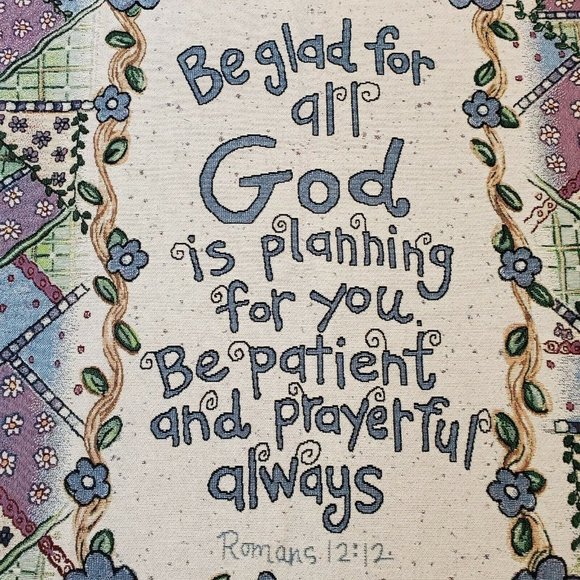 Be glad for
all
God
is planning
for you.
Be patient
and prayerful
always
Romans 12:12